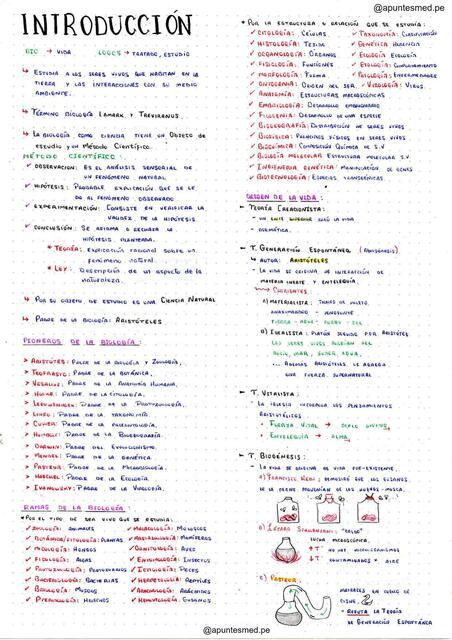 @apuntesmed.pe
INTRODUCCIÓN
BIO → VIDA LOGOS → TRATADO, ESTUDIO
↳ ESTUDIA A LOS SERES VIVOS QUE HABITAN EN LA
TIERRA Y LAS INTERACCIONES CON SU MEDIO
AMBIENTE.
↳ TÉRMINO BIOLOGÍA LAMARK Y TREVIRANUS.
↳ LA BIOLOGÍA COMO CIENCIA TIENE UN OBJETO DE
ESTUDIO Y UN MÉTODO CIENTÍFICO.
MÉTODO CIENTÍFICO:
✓ OBSERVACIÓN: ES EL ANÁLISIS SENSORIAL DE
UN FENÓMENO NATURAL
✓ HIPÓTESIS: PROBABLE EXPLICACIÓN QUE SE LE
DA AL FENÓMENO OBSERVADO
✓ EXPERIMENTACIÓN: CONSISTE EN VERIFICAR LA
VALIDEZ DE LA HIPÓTESIS
✓ CONCLUSIÓN: SE AFIRMA O RECHAZA LA
HIPÓTESIS PLANTEADA.
* TEORÍA: explicación racional sobre un
fenómeno natural.
* LEY: Descripción de un aspecto de la
naturaleza.
↳ POR SU OBJETO DE ESTUDIO ES UNA CIENCIA NATURAL
↳ PADRE DE LA BIOLOGÍA: ARISTÓTELES
PIONEROS DE LA BIOLOGÍA:
> ARISTÓTELES: PADRE DE LA BIOLOGÍA Y ZOOLOGÍA.
> TEOFRASTO: PADRE DE LA BOTÁNICA.
> VESALIUS: PADRE DE LA ANATOMÍA HUMANA.
> HOOKE: PADRE DE LA CITOLOGÍA.
> LEEUWENHOEK: PADRE DE LA PROTOZOOLOGÍA.
> LINEO: PADRE DE LA TAXONOMÍA.
> CUVIER: PADRE DE LA PALEONTOLOGÍA.
> HUMBOLDT: PADRE DE LA BIOGEOGRAFÍA.
> DARWIN: PADRE DEL EVOLUCIONISMO.
> MENDEL: PADRE DE LA GENÉTICA.
> PASTEUR: PADRE DE LA MICROBIOLOGÍA.
> HAECKEL: PADRE DE LA ECOLOGÍA
> IVANOWSKY: PADRE DE LA VIROLOGÍA.
RAMAS DE LA BIOLOGÍA:
* POR EL TIPO DE SER VIVO QUE SE ESTUDIA:
✓ ZOOLOGÍA: ANIMALES ✓ MALACOLOGÍA: MOLUSCOS
✓ BOTÁNICA/FITOLOGÍA: PLANTAS ✓ MASTOZOOLOGÍA: MAMÍFEROS
✓ MICOLOGÍA: HONGOS ✓ ORNITOLOGÍA: AVES
✓ FICOLOGÍA: ALGAS ✓ ENTOMOLOGÍA: INSECTOS
✓ PROTOZOOLOGÍA: PROTOZOARIOS ✓ ICTIOLOGÍA: PECES
✓ BACTERIOLOGÍA: BACTERIAS ✓ HERPETOLOGÍA: REPTILES
✓ BRIOLOGÍA: MUSGOS ✓ ARACNOLOGÍA: ARÁCNIDOS
✓ PTERIDOLOGÍA: HELECHOS ✓ HELMINTOLOGÍA: GUSANOS
* POR LA ESTRUCTURA O RELACIÓN QUE SE ESTUDIA:
✓ CITOLOGÍA: CÉLULAS. ✓ TAXONOMÍA: CLASIFICACIÓN
✓ HISTOLOGÍA: TEJIDO ✓ GENÉTICA: HERENCIA
✓ ORGANOLOGÍA: ÓRGANOS ✓ ECOLOGÍA: ECOLOGÍA
✓ FISIOLOGÍA: FUNCIONES ✓ ETOLOGÍA: COMPORTAMIENTO
✓ MORFOLOGÍA: FORMA ✓ PATOLOGÍA: ENFERMEDADES
✓ ONTOGENIA: ORIGEN DEL SER. ✓ VIROLOGÍA: VIRUS
✓ ANATOMÍA: ESTRUCTURAS MACROSCÓPICAS
✓ EMBRIOLOGÍA: DESARROLLO EMBRIONARIO
✓ FILOGENIA: DESARROLLO DE UNA ESPECIE
✓ BIOGEOGRAFÍA: DISTRIBUCIÓN DE SERES VIVOS
✓ BIOFÍSICA: PRINCIPIOS FÍSICOS EN SERES VIVOS
✓ BIOQUÍMICA: COMPOSICIÓN QUÍMICA DE S.V
✓ BIOLOGÍA MOLECULAR: ESTRUCTURA MOLECULAR S.V
✓ INGENIERÍA GENÉTICA: MANIPULACIÓN DE GENES
✓ BIOTECNOLOGÍA: ESPECIES TRANSGÉNICAS.
ORIGEN DE LA VIDA:
- TEORÍA CREACIONISTA:
- UN ENTE SUPERIOR CREÓ LA VIDA
- DOGMÁTICA.
- T. GENERACIÓN ESPONTÁNEA: (ABIOGÉNESIS)
↳ AUTOR: ARISTÓTELES
- LA VIDA SE ORIGINA DE INTERACCIÓN DE
MATERIA INERTE Y ENTELEQUIA.
CORRIENTES:
A) MATERIALISTA: THALES DE MILETO
ANAXIMANDRO - JENÓFANES
TIERRA - AIRE - FUEGO - SOL
B) IDEALISTA: PLATÓN SEGUIDO POR ARISTÓTELES
LOS SERES VIVOS NACÍAN DEL
ROCÍO, MAR, SUDOR, AGUA.
... ADEMÁS ARISTÓTELES LE AGREGA
UNA FUERZA SUPERNATURAL
- T. VITALISTA:
- LA IGLESIA INCORPORA LOS PENSAMIENTOS
ARISTOTÉLICOS
* FUERZA VITAL → SOPLO DIVINO
* ENTELEQUIA → ALMA
- T. BIOGÉNESIS:
- LA VIDA SE ORIGINA DE VIDA PRE-EXISTENTE.
A) FRANCISCO REDI: DEMOSTRÓ QUE LOS GUSANOS
DE LA CARNE PROVENÍAN DE LOS HUEVOS-MOSCA.
B) LÁZARO SPALLANZANI: "CALDO"
LUCHA MICROSCÓPICA.
↑T° NO HAY MICROORGANISMOS
↓T° CONTAMINADOS * AIRE
C) PASTEUR:
MATRACES EN CUELLO DE
CISNE.
- REFUTA LA TEORÍA
DE GENERACIÓN ESPONTÁNEA
@apuntesmed.pe